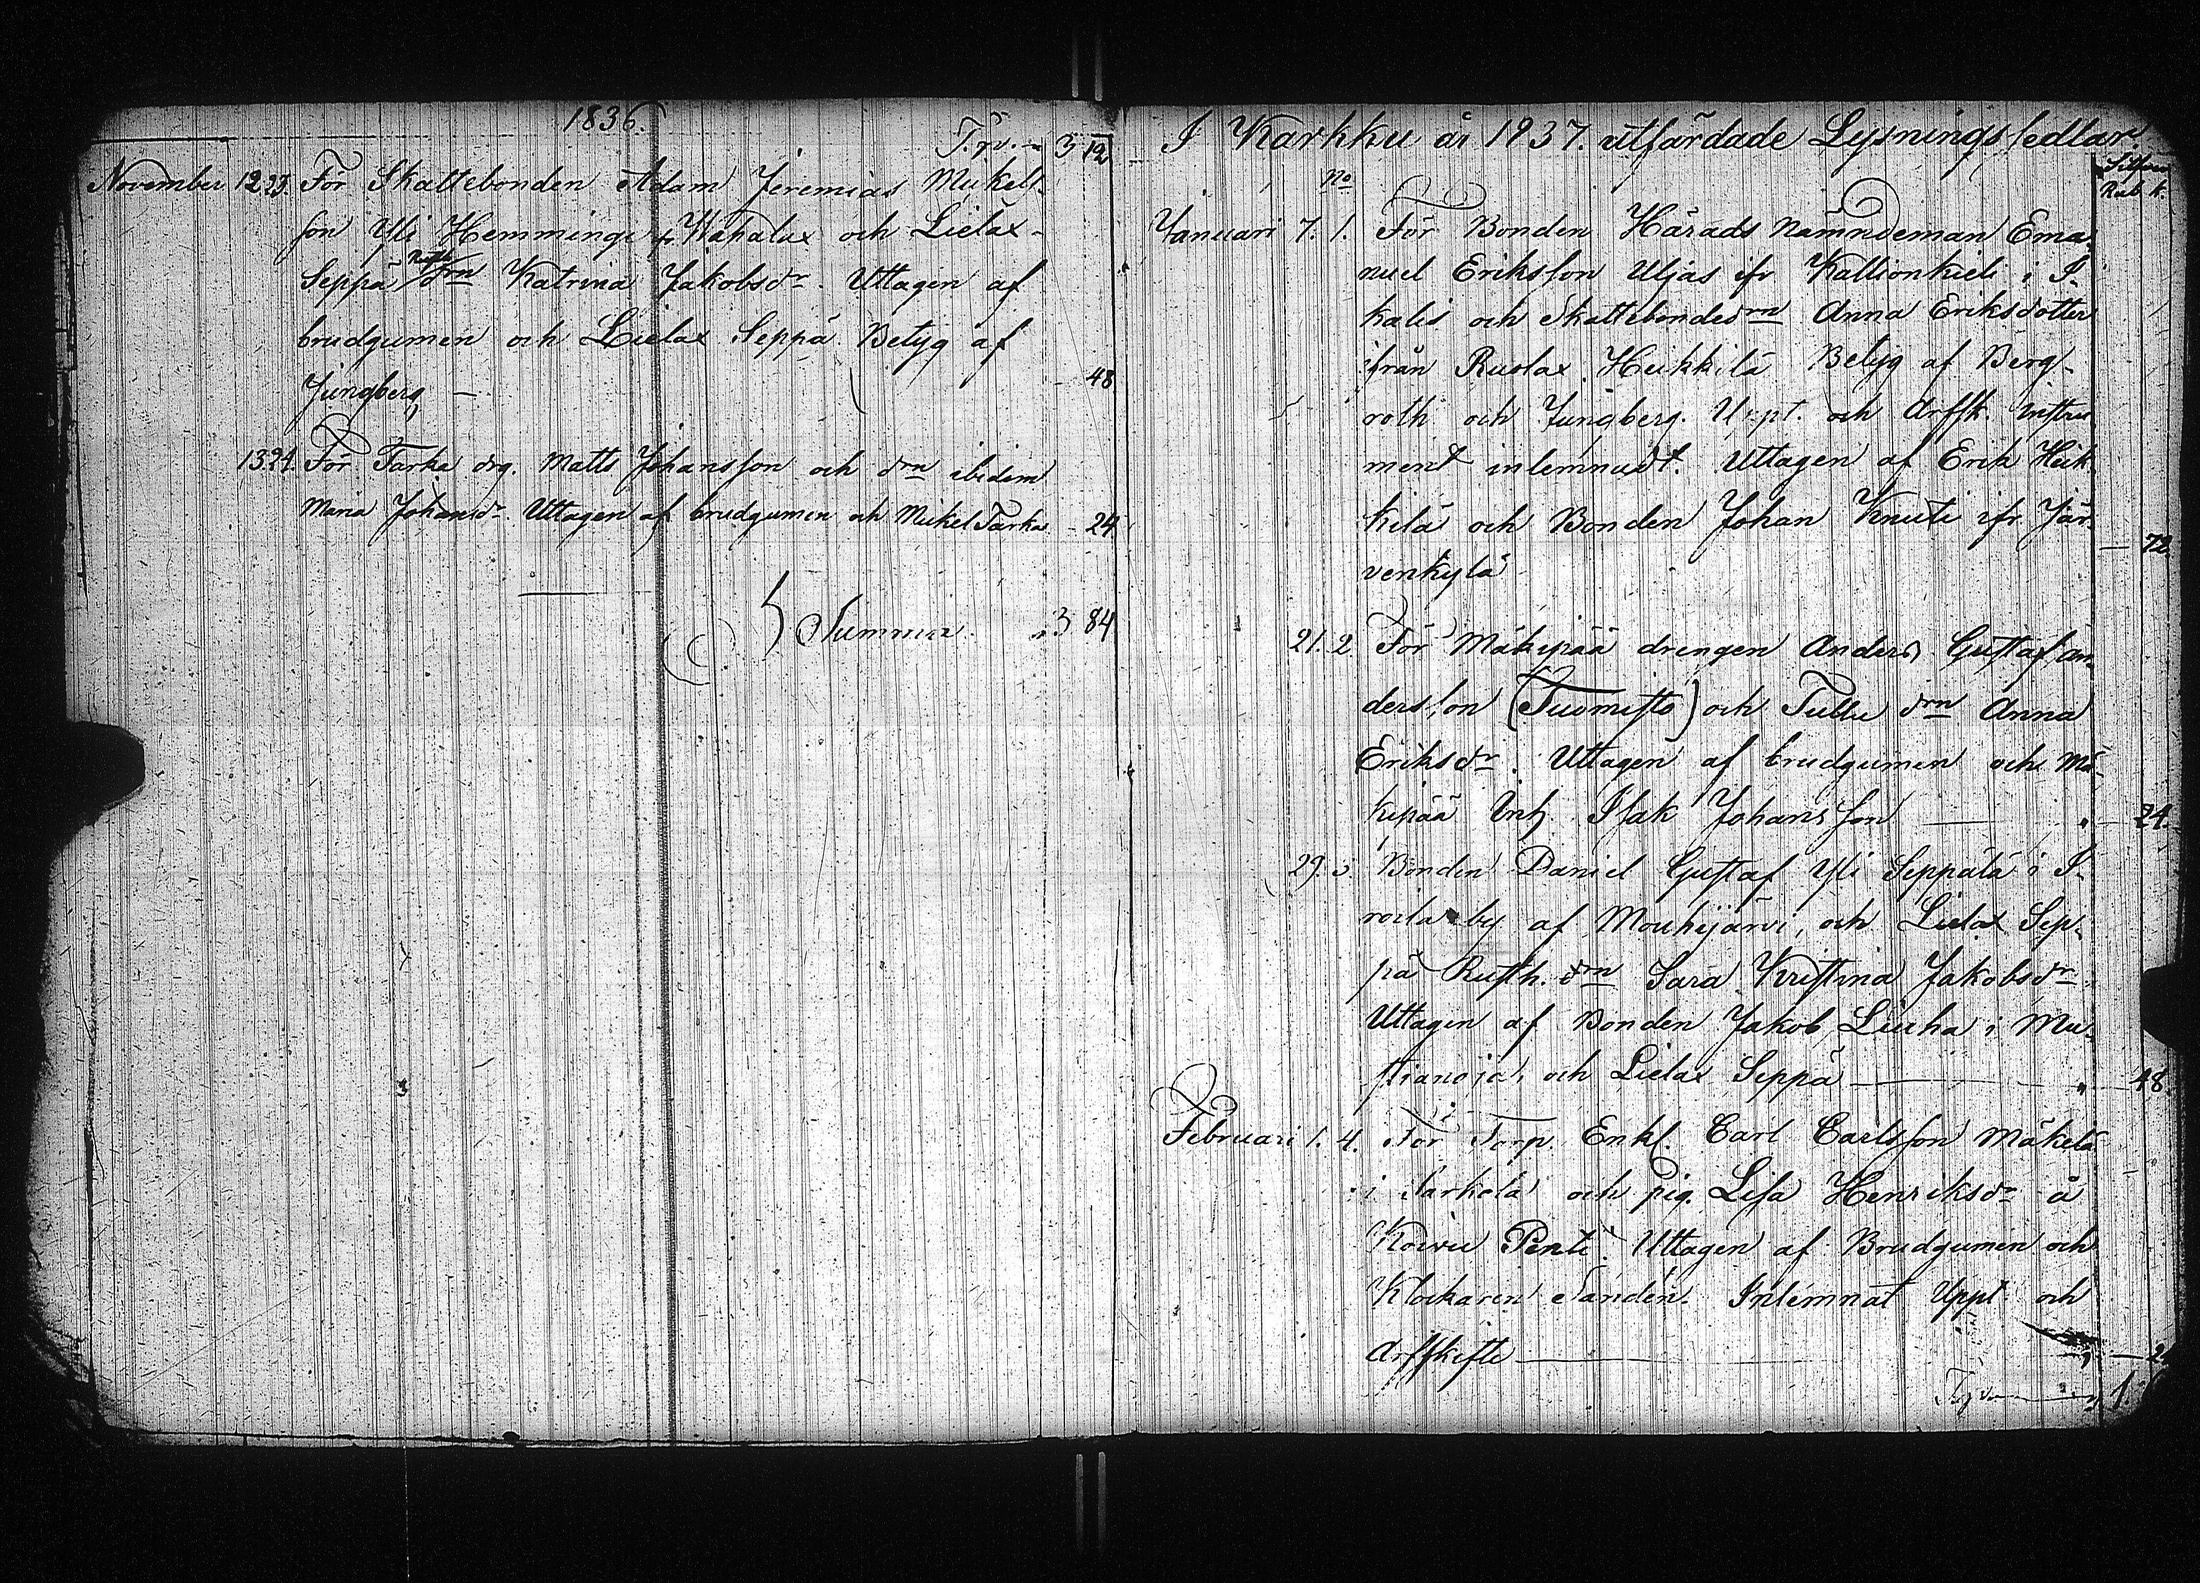 1836.
Tr. 3 12
November 12. 23. För Skattebonden Adam Jeremias Mickels-
son Yli Hemmingi fr Wahalax och Lielax
Seppä Rusth. drn Katrina Jakobsdr. Uttagen af
brudgumen och Lielax Seppä Betyg af
Jungberg — 48
13. 24. För Tarka drg. Matts Johansson och drn ibidem
Maria Johansdr Uttagen af brudgumen och Mickel Tarka - 24
Summa 3 84
I Karkku år 1837. utfärdade Lysningssedlar.
Silfver
No Rub. k.
Januari 7. 1. För Bonden Härads Nämndeman Ema-
nuel Eriksson Uljas ifr Kallionkieli i I-
kalis och Skattebondedrn Anna Eriksdotter
ifrån Ruolax Heikkilä Betyg af Berg-
roth och Jungberg. Uppt. och Arfsk. instru-
ment inlemnadt. Uttagen af Erik Heik-
kilä och Bonden Johan Knuti ifr. Jär-
venkylä — 72
21. 2 För Mäkipää drengen Anders Gustaf An-
dersson (Tuomisto) och Tulu drn Anna
Eriksdr. Uttagen af brudgumen och Mä-
kipää Inh. Isak Johansson — " — 24.
29. 3 Bonden Daniel Gustaf Yli Seppälä i I-
rocla by af Mouhijärvi, och Lielax Sep-
pä Rusth. drn Sara Kristina Jakobsdr
Uttagen af Bonden Jakob Liuha i Mu-
stianoja, och Lielax Seppä — " — 48.
Februari 1. 4. För Torp. Enkl. Carl Carlsson Mäkelä
i Särkola och pig. Lisa Henriksdr å
Koivu Penti. Uttagen af Brudgumen och
Klockaren Sandén. Inlemnat Uppt och
Arfskifte —